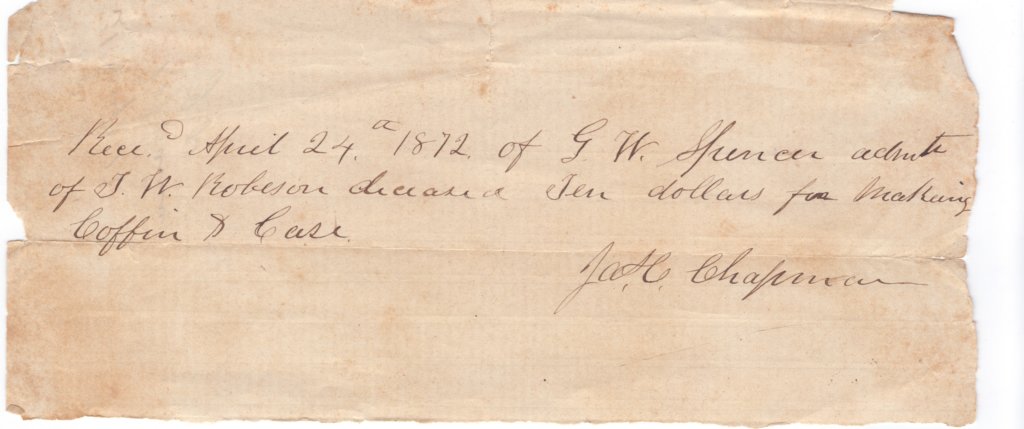 Rece.d April 24.th 1872. of G W. Spencer admtr
of T. W. Robeson deceased Ten dollars for Making
Coffin & Case.
Chapman